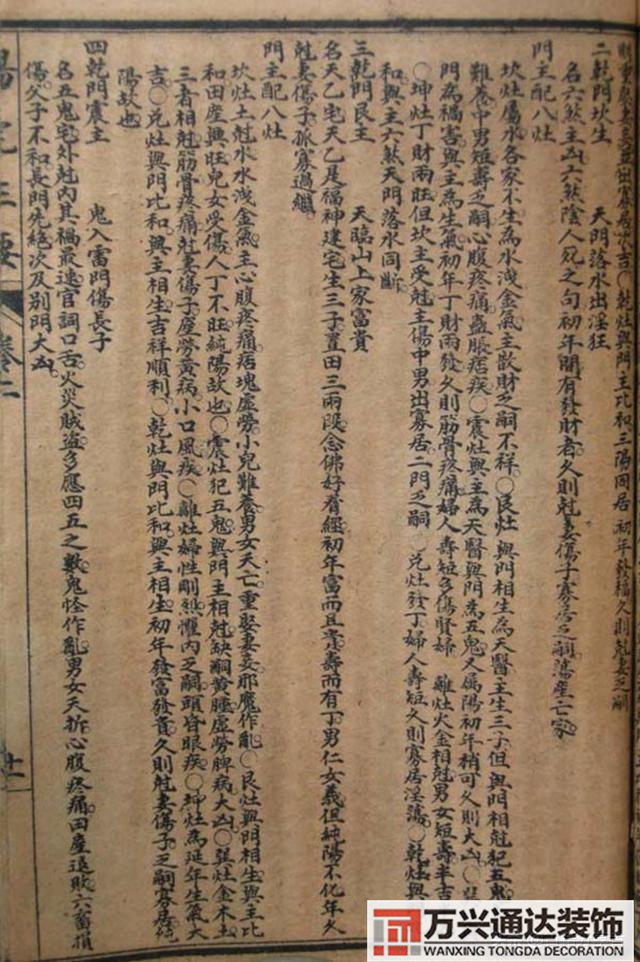 二乾門坎主　天門落水出淫狂
名六煞主凶六煞陰人死之句初年間有發財者久則尅妻傷子寡居乏嗣蕩產亡家
門主配八灶
坎灶屬水各家不生為水洩金氣主散財乏嗣不祥〇艮灶與門相生為天醫主生三子但與門相尅犯五鬼
難養中男短壽乏嗣心腹疼痛蠱脹痞疾〇震灶與主為天醫與門為五鬼又屬陽初年稍可久則大凶〇
門為禍害與主為生氣初年丁財兩發久則筋骨疼痛婦人壽短多傷賢婦　離灶火金相尅男女短壽半吉
〇坤灶丁財兩旺但坎主受尅主傷中男出寡居二門乏嗣　兌灶發丁婦人壽短久則寡居淫蕩〇乾灶與
和與主六煞天門落水同斷
三乾門艮主　天臨山上家富貴
名天乙宅天乙是福神建宅生三子置田三兩段念佛好看經初年富而且貴壽而有丁男仁女義但純陽不化年久
尅妻傷子孤寡過繼
門主配八灶
坎灶土尅水水洩金氣主心腹疼痛痞塊虛勞小兒難養男女夭亡重娶妻妾邪魔作亂〇艮灶與門相生與主比
和田產興旺兒女受傷人丁不旺純陽故也〇震灶犯五鬼與門主相尅缺嗣黃腫虛勞脾病大凶〇巽灶金木土
三者相尅筋骨疼痛尅妻傷子產勞黃病小口風疾〇離灶婦性剛烈懼內乏嗣頭昏眼疾〇坤灶為延年生氣大
吉〇兌灶與門比和與主相生吉祥順利〇乾灶與門比和與主相生初年發富發貴久則尅妻傷子乏嗣寡居純
陽故也
四乾門震主　鬼入雷門傷長子
名五鬼宅外尅內其禍最速官詞口舌火災賊盜多應四五之數鬼怪作亂男女夭折心腹疼痛田產退敗六畜損
傷父子不和長門先絕次及別門大凶
卷二
万兴通达装饰
WANXING TONGDA DECORATION